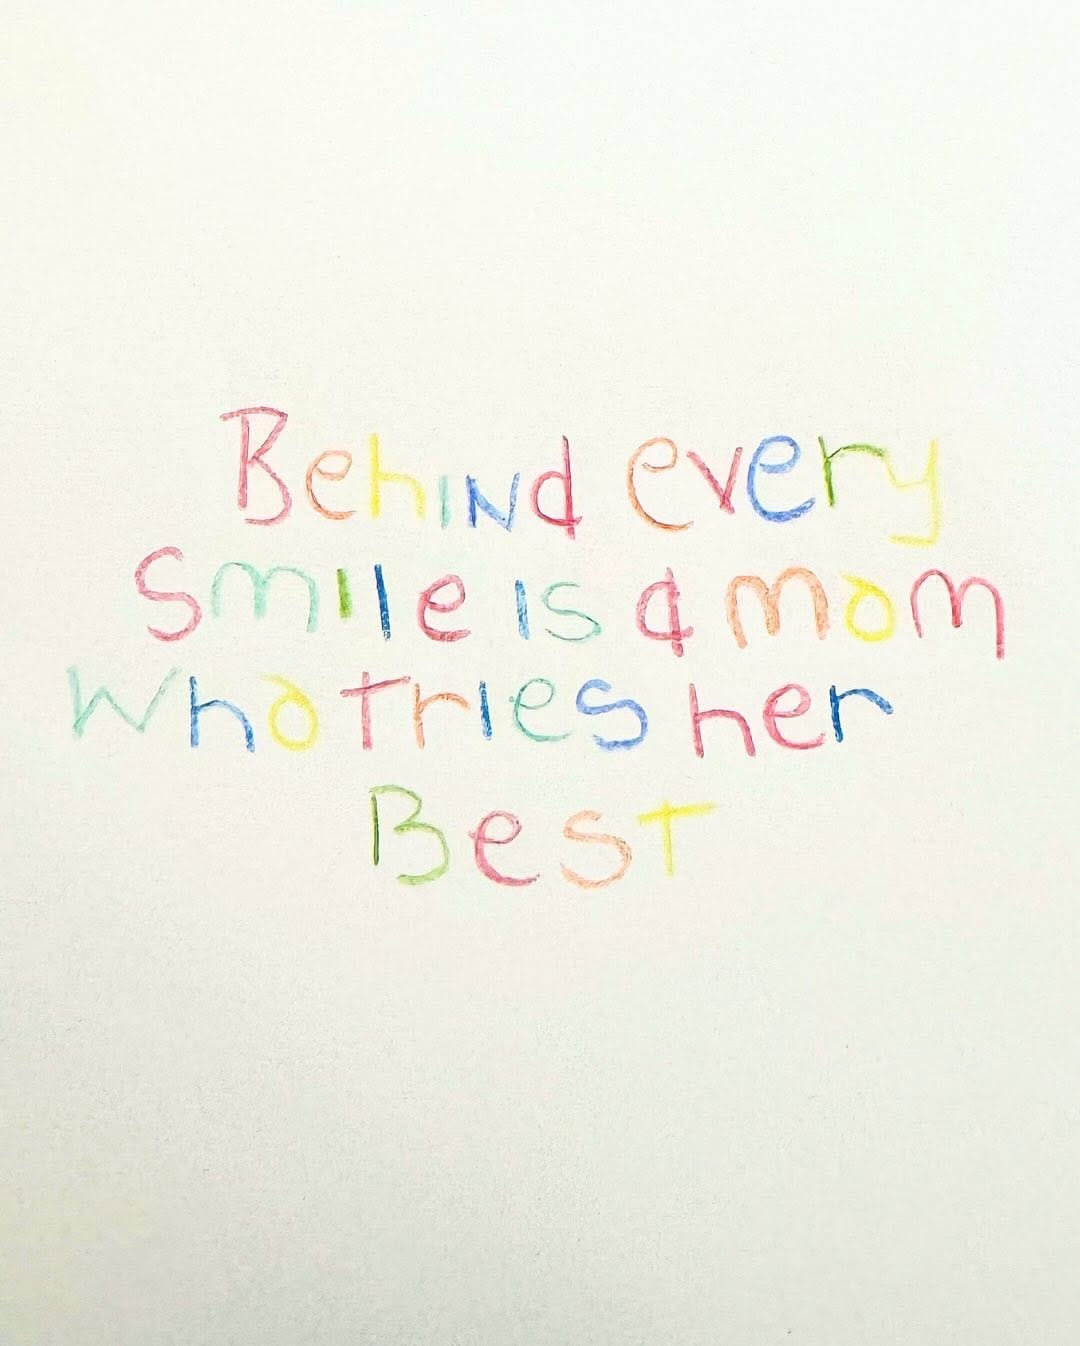 Behind every
Smile is a mom
Who tries her
Best